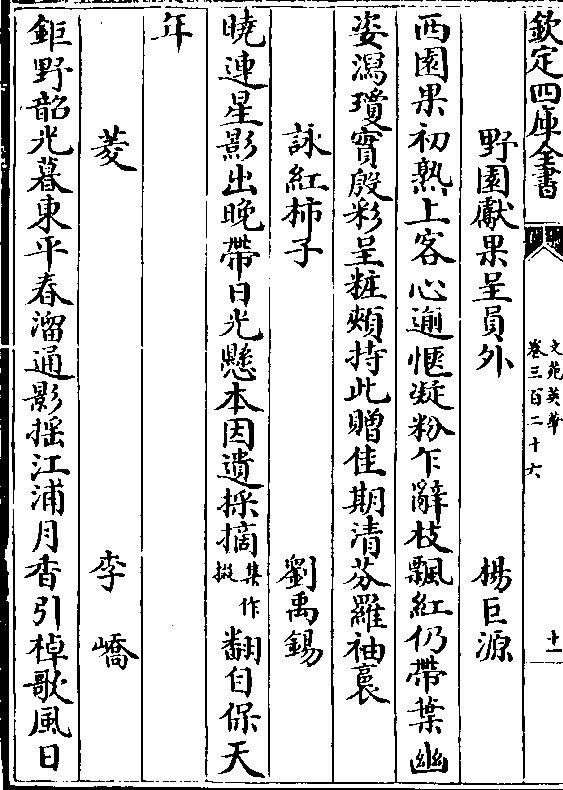 欽定四庫全書
文苑英華
卷三百二十六
十一
野園獻果呈員外 楊巨源
西園果初熟上客心逾愜凝粉乍辭枝飄紅仍帶葉幽
姿瀉瓊實殷彩呈粧頰持此贈佳期清芬羅袖裛
詠紅柿子 劉禹錫
曉連星影出晚帶日光懸本因遺採摘集作掇翻自保天
年
菱 李嶠
鉅野韶光暮東平春溜通影搖江浦月香引棹歌風日